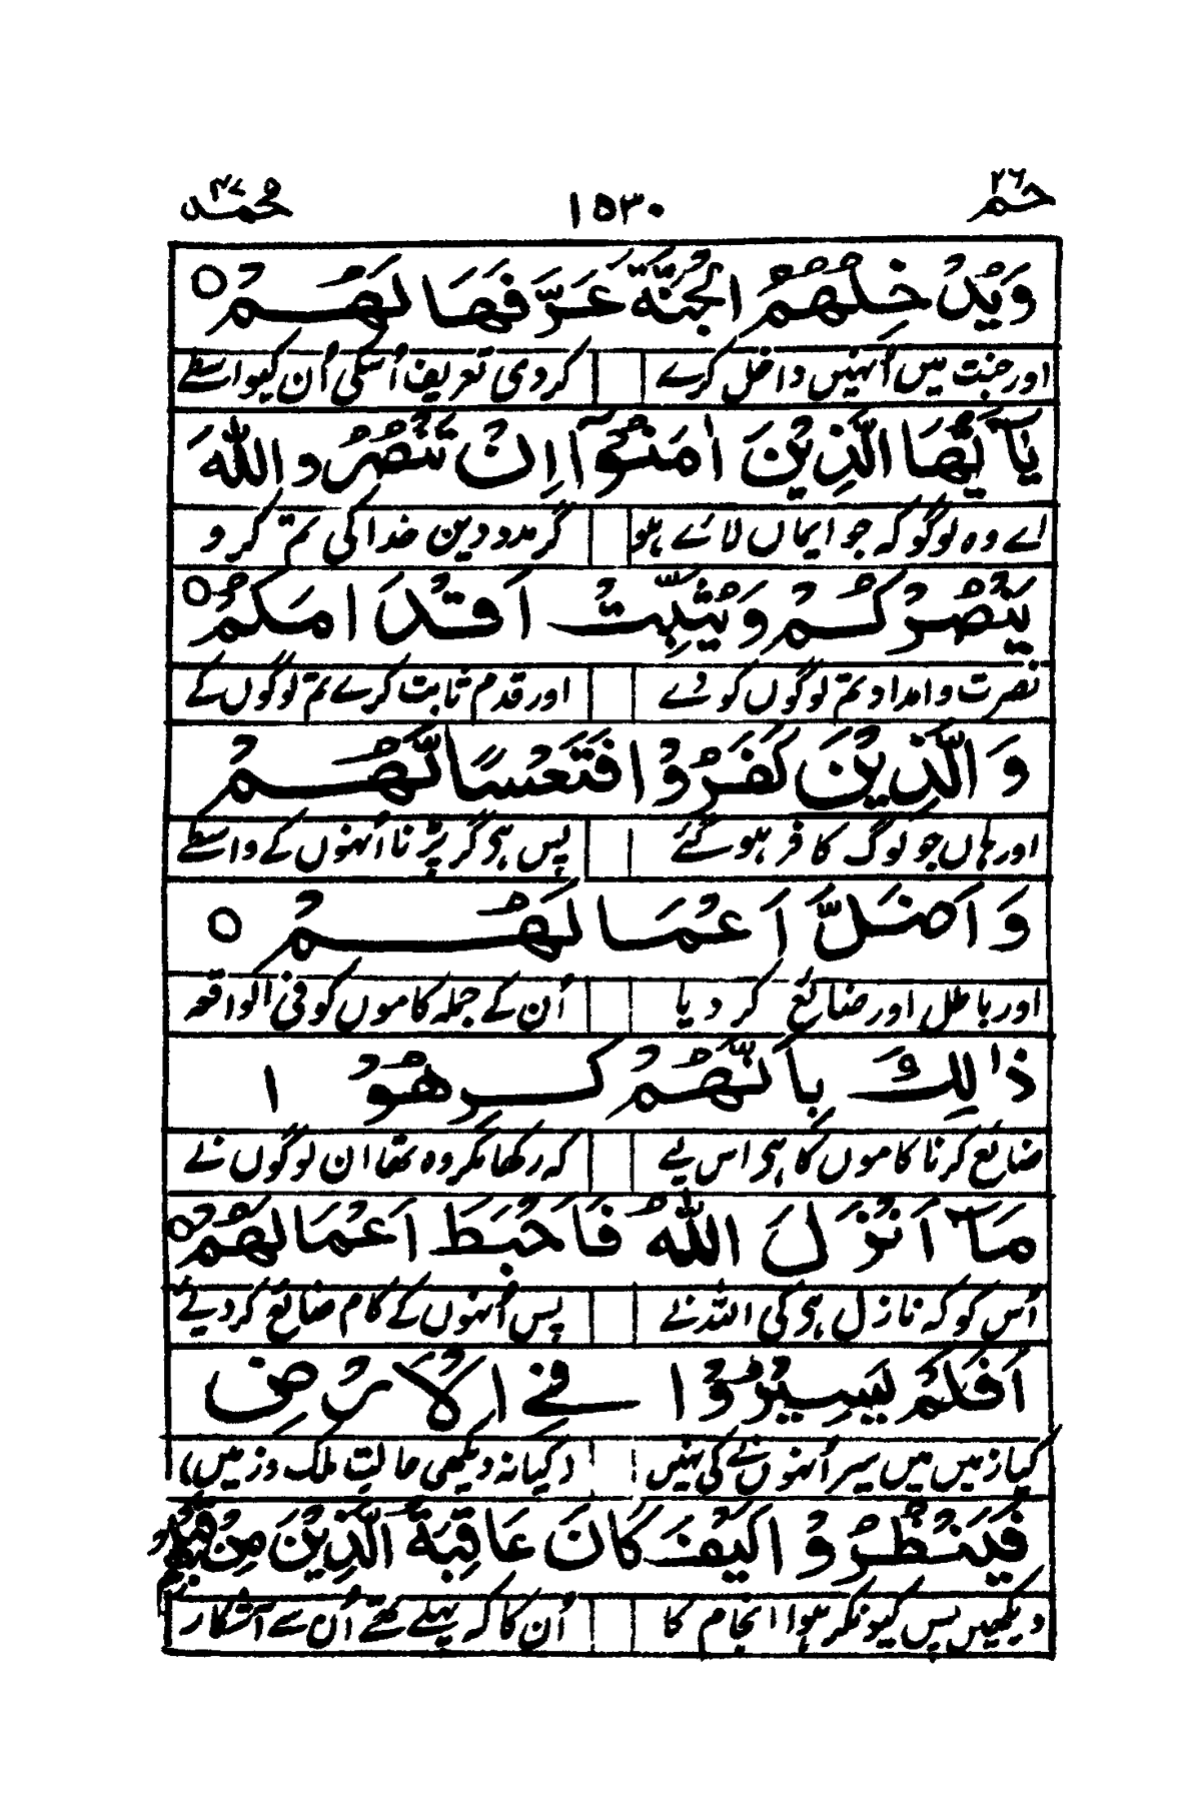 حٰم ٢٦ ١٥٣٠ محمد ٤٧
وَيُدْخِلُهُمُ الْجَنَّةَ عَرَّفَهَا لَهُمْ ○
اور جنت میں اُنہیں داخل کرے کردی تعریف اُسکی اُن کیواسطے
يٰٓاَيُّهَا الَّذِيْنَ اٰمَنُوْٓا اِنْ تَنْصُرُوا اللهَ
اے وہ لوگو کہ جو ایماں لائے ہو گر مدد دین خدا کی تم کرو
يَنْصُرْكُمْ وَيُثَبِّتْ اَقْدَامَكُمْ ○
نصرت و امداد تم لوگوں کو دے اور قدم ثابت کرے تم لوگوں کے
وَالَّذِيْنَ كَفَرُوْا فَتَعْسًا لَّهُمْ
اور ہاں جو لوگ کافر ہو گئے پس ہی گر پڑنا اُنہوں کے واسطے
وَاَضَلَّ اَعْمَالَهُمْ ○
اور باطل اور ضائع کر دیا اُن کے جملہ کاموں کو فی الواقعہ
ذٰلِكَ بِاَنَّهُمْ كَرِهُوْا
ضائع کرنا کاموں کا ہی اس لیے کہ رکھا مکروہ تھا ان لوگوں نے
مَآ اَنْزَلَ اللهُ فَاَحْبَطَ اَعْمَالَهُمْ ○
اُس کو کہ نازل ہی کی اللہ نے پس اُنہوں کے کام ضائع کر دیے
اَفَلَمْ يَسِيْرُوْا فِي الْاَرْضِ
کیا زمیں میں سیر اُنہوں نے کی نہیں (کیا نہ دیکھی حالت ملک و زمیں)
فَيَنْظُرُوْا كَيْفَ كَانَ عَاقِبَةُ الَّذِيْنَ مِنْ
دیکھیں پس کیونکر ہوا انجام کا اُن کا کہ پہلے تھے اُن سے آشکار